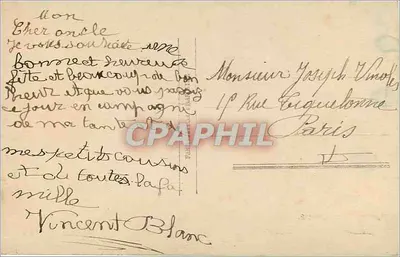 Mon
Cher oncle
Je vous souhaite une
bonne et heureuse
fête et beaucoup de bon
heur et que vous
ce jour en compagni
de ma tante
mes petits cousins
et de toutes la fa
mille
Vincent Blanc
Monsieur Joseph
1P Rue Tiquetonne
Paris
CPAPHIL